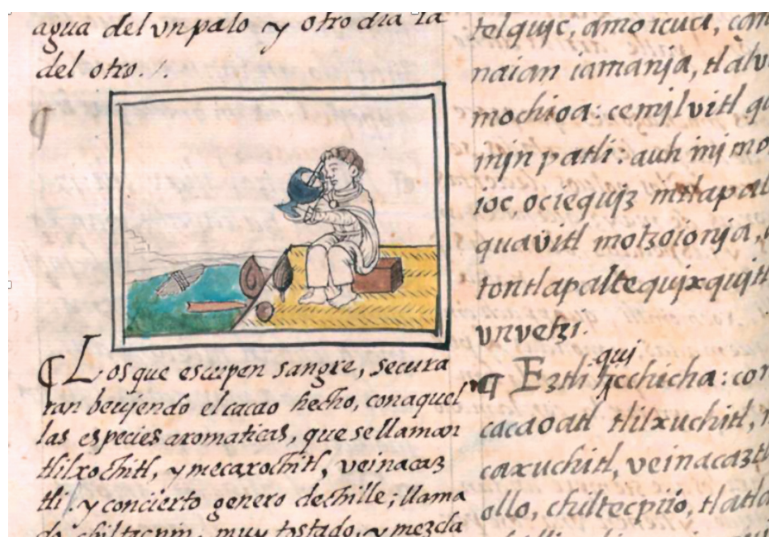 agua del vn palo y otro dia la
del otro.
¶
¶ Los que escupen sangre, secura
ran beujendo el cacao hecho, con aquel
las especies aromaticas, que se llaman
tlilxochitl, y mecaxochitl, veinacaz
tli, y con cierto genero de chille; llama
do chiltecpin, muy tostado, y mezcla
telquic, amo icuci,
naian iamanja,
mochioa: cemilvitl
mjn patli: auh inj
ioc ociequiz
quavitl motzoionja,
tontlapaltequixquitl
vnvetzi.
¶ Eztli qui chicha:
cacaoatl tlilxuchitl,
caxuchitl, veinacaztl
ollo, chiltecpiio,